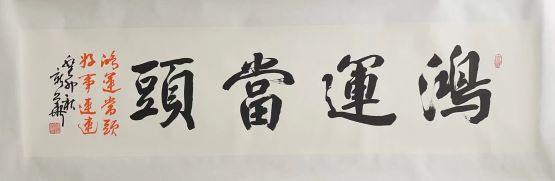 鴻運當頭
鴻運當頭
好事連連
癸卯秋